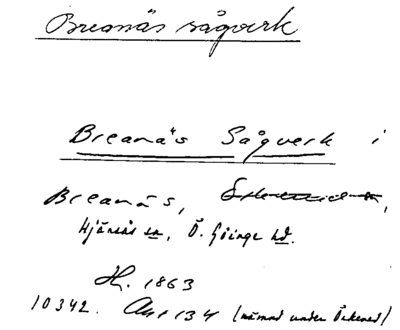 Breanäs sågverk
Breanäs Sågverk i
Breanäs,
Hjärsås sn, Ö. Göinge hd.
H. 1863
10342. Aut 134 (nämnd under Ökened)